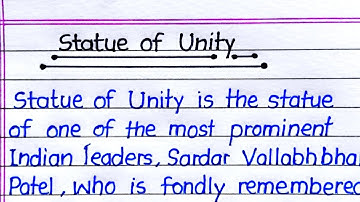 Statue of Unity
Statue of Unity is the statue
of one of the most prominent
Indian leaders, Sardar Vallabhbha
Patel, who is fondly remembered